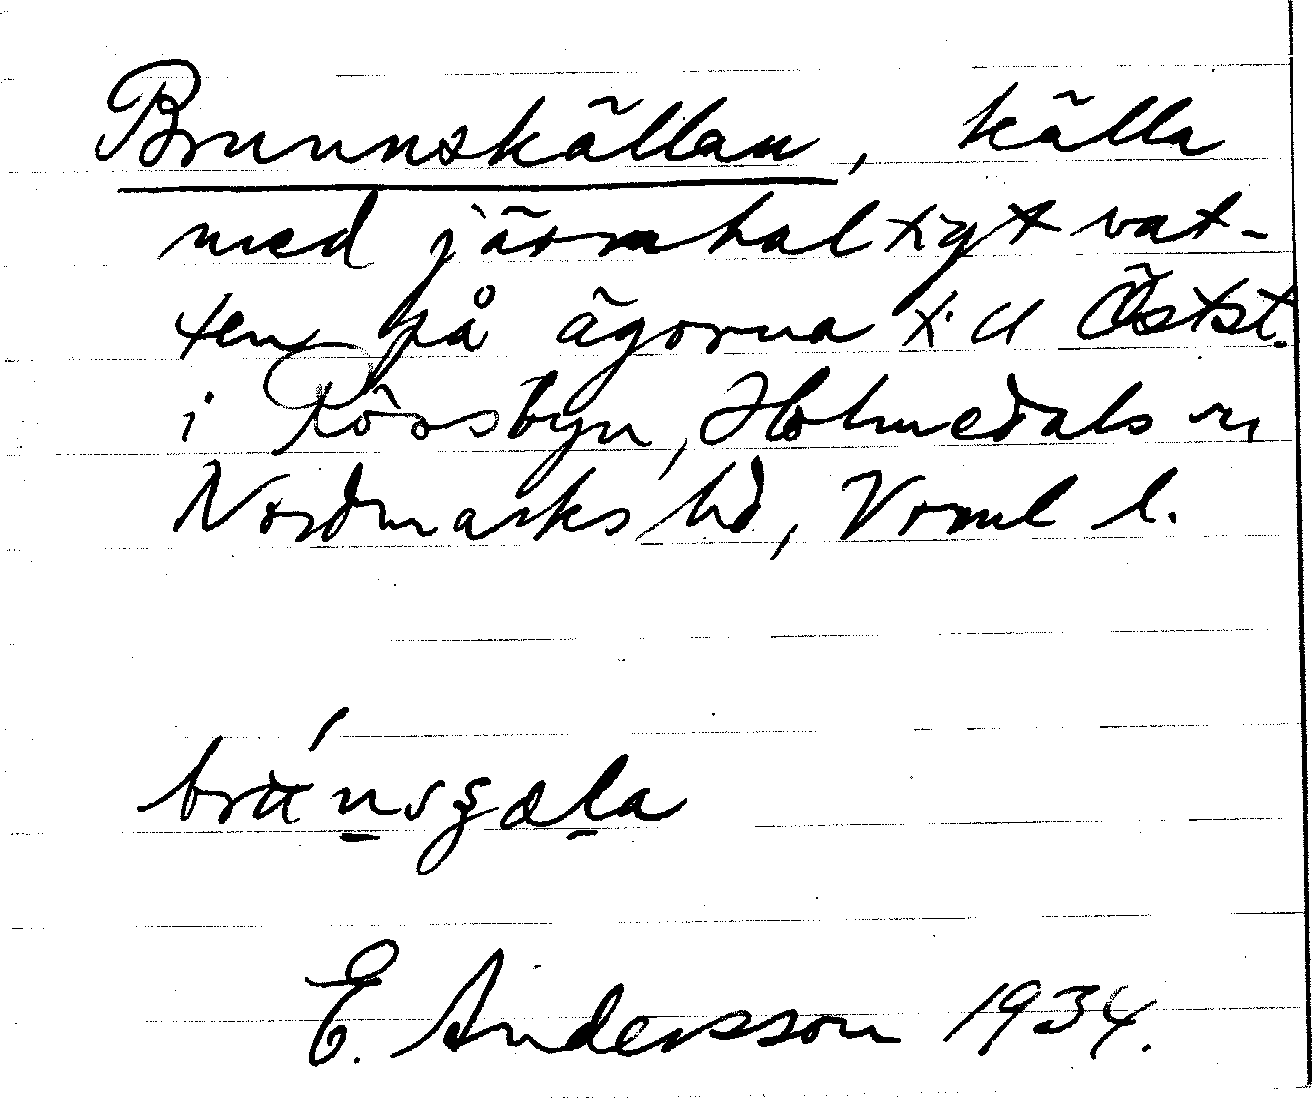 Brunnskällan, källa
med järnhaltigt vat-
ten på ägorna till Östst.
i Rörsbyn, Holmedals sn
Nordmarks hd, Vrml l.
E. Andersson 1934.